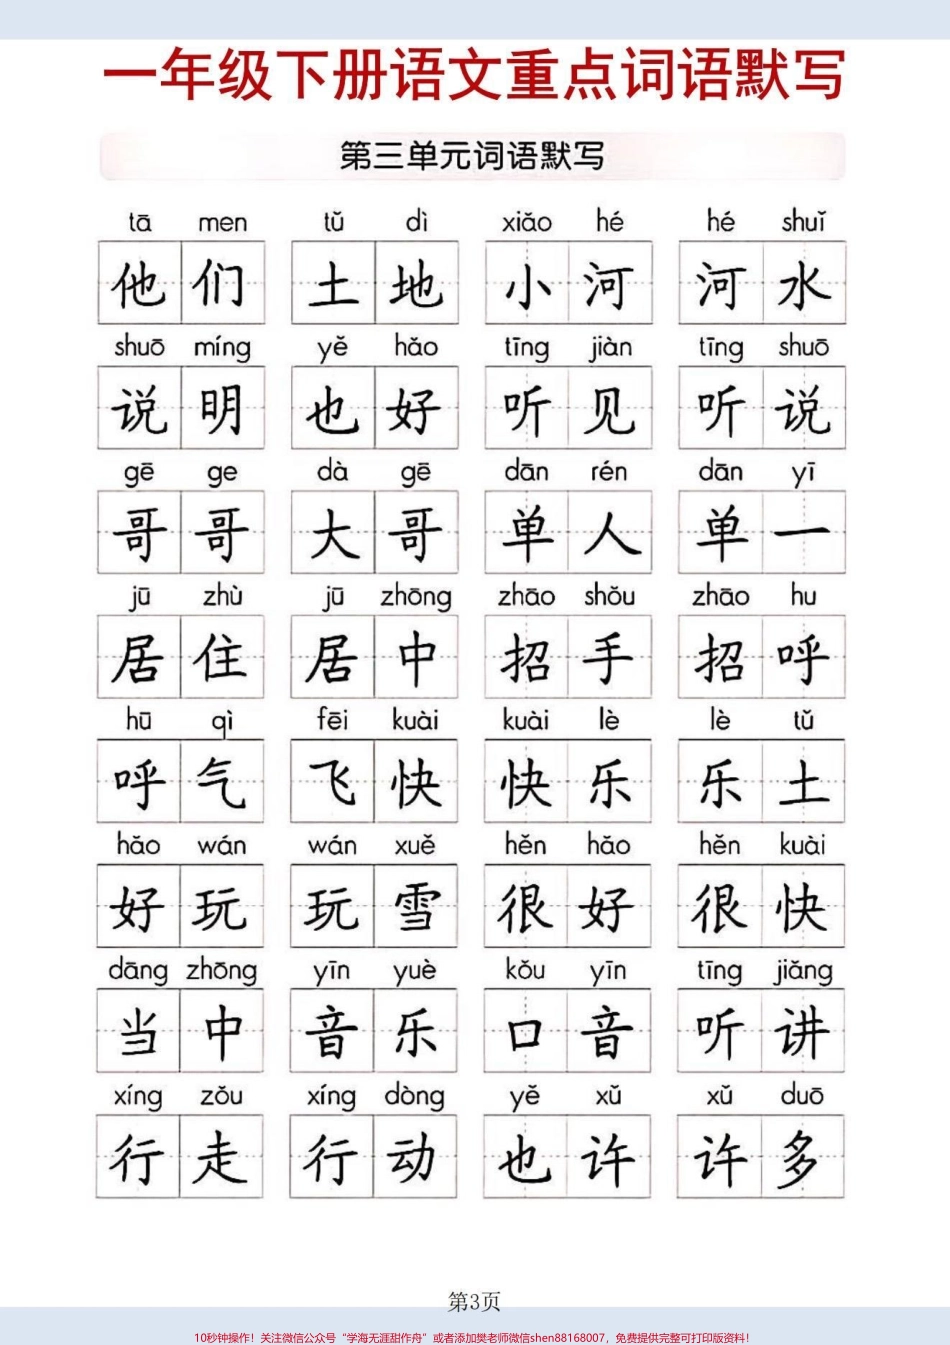 一年级下册语文重点词语默写
第三单元词语默写
tā men tǔ dì xiǎo hé hé shuǐ
他们 土地 小河 河水
shuō míng yě hǎo tīng jiàn tīng shuō
说明 也好 听见 听说
gē ge dà gē dān rén dān yī
哥哥 大哥 单人 单一
jū zhù jū zhōng zhāo shǒu zhāo hu
居住 居中 招手 招呼
hū qì fēi kuài kuài lè lè tǔ
呼气 飞快 快乐 乐土
hǎo wán wán xuě hěn hǎo hěn kuài
好玩 玩雪 很好 很快
dāng zhōng yīn yuè kǒu yīn tīng jiǎng
当中 音乐 口音 听讲
xíng zǒu xíng dòng yě xǔ xǔ duō
行走 行动 也许 许多
第3页
10秒钟操作！关注微信公众号“学海无涯甜作舟”或者添加樊老师微信shen88168007，免费提供完整可打印版资料！